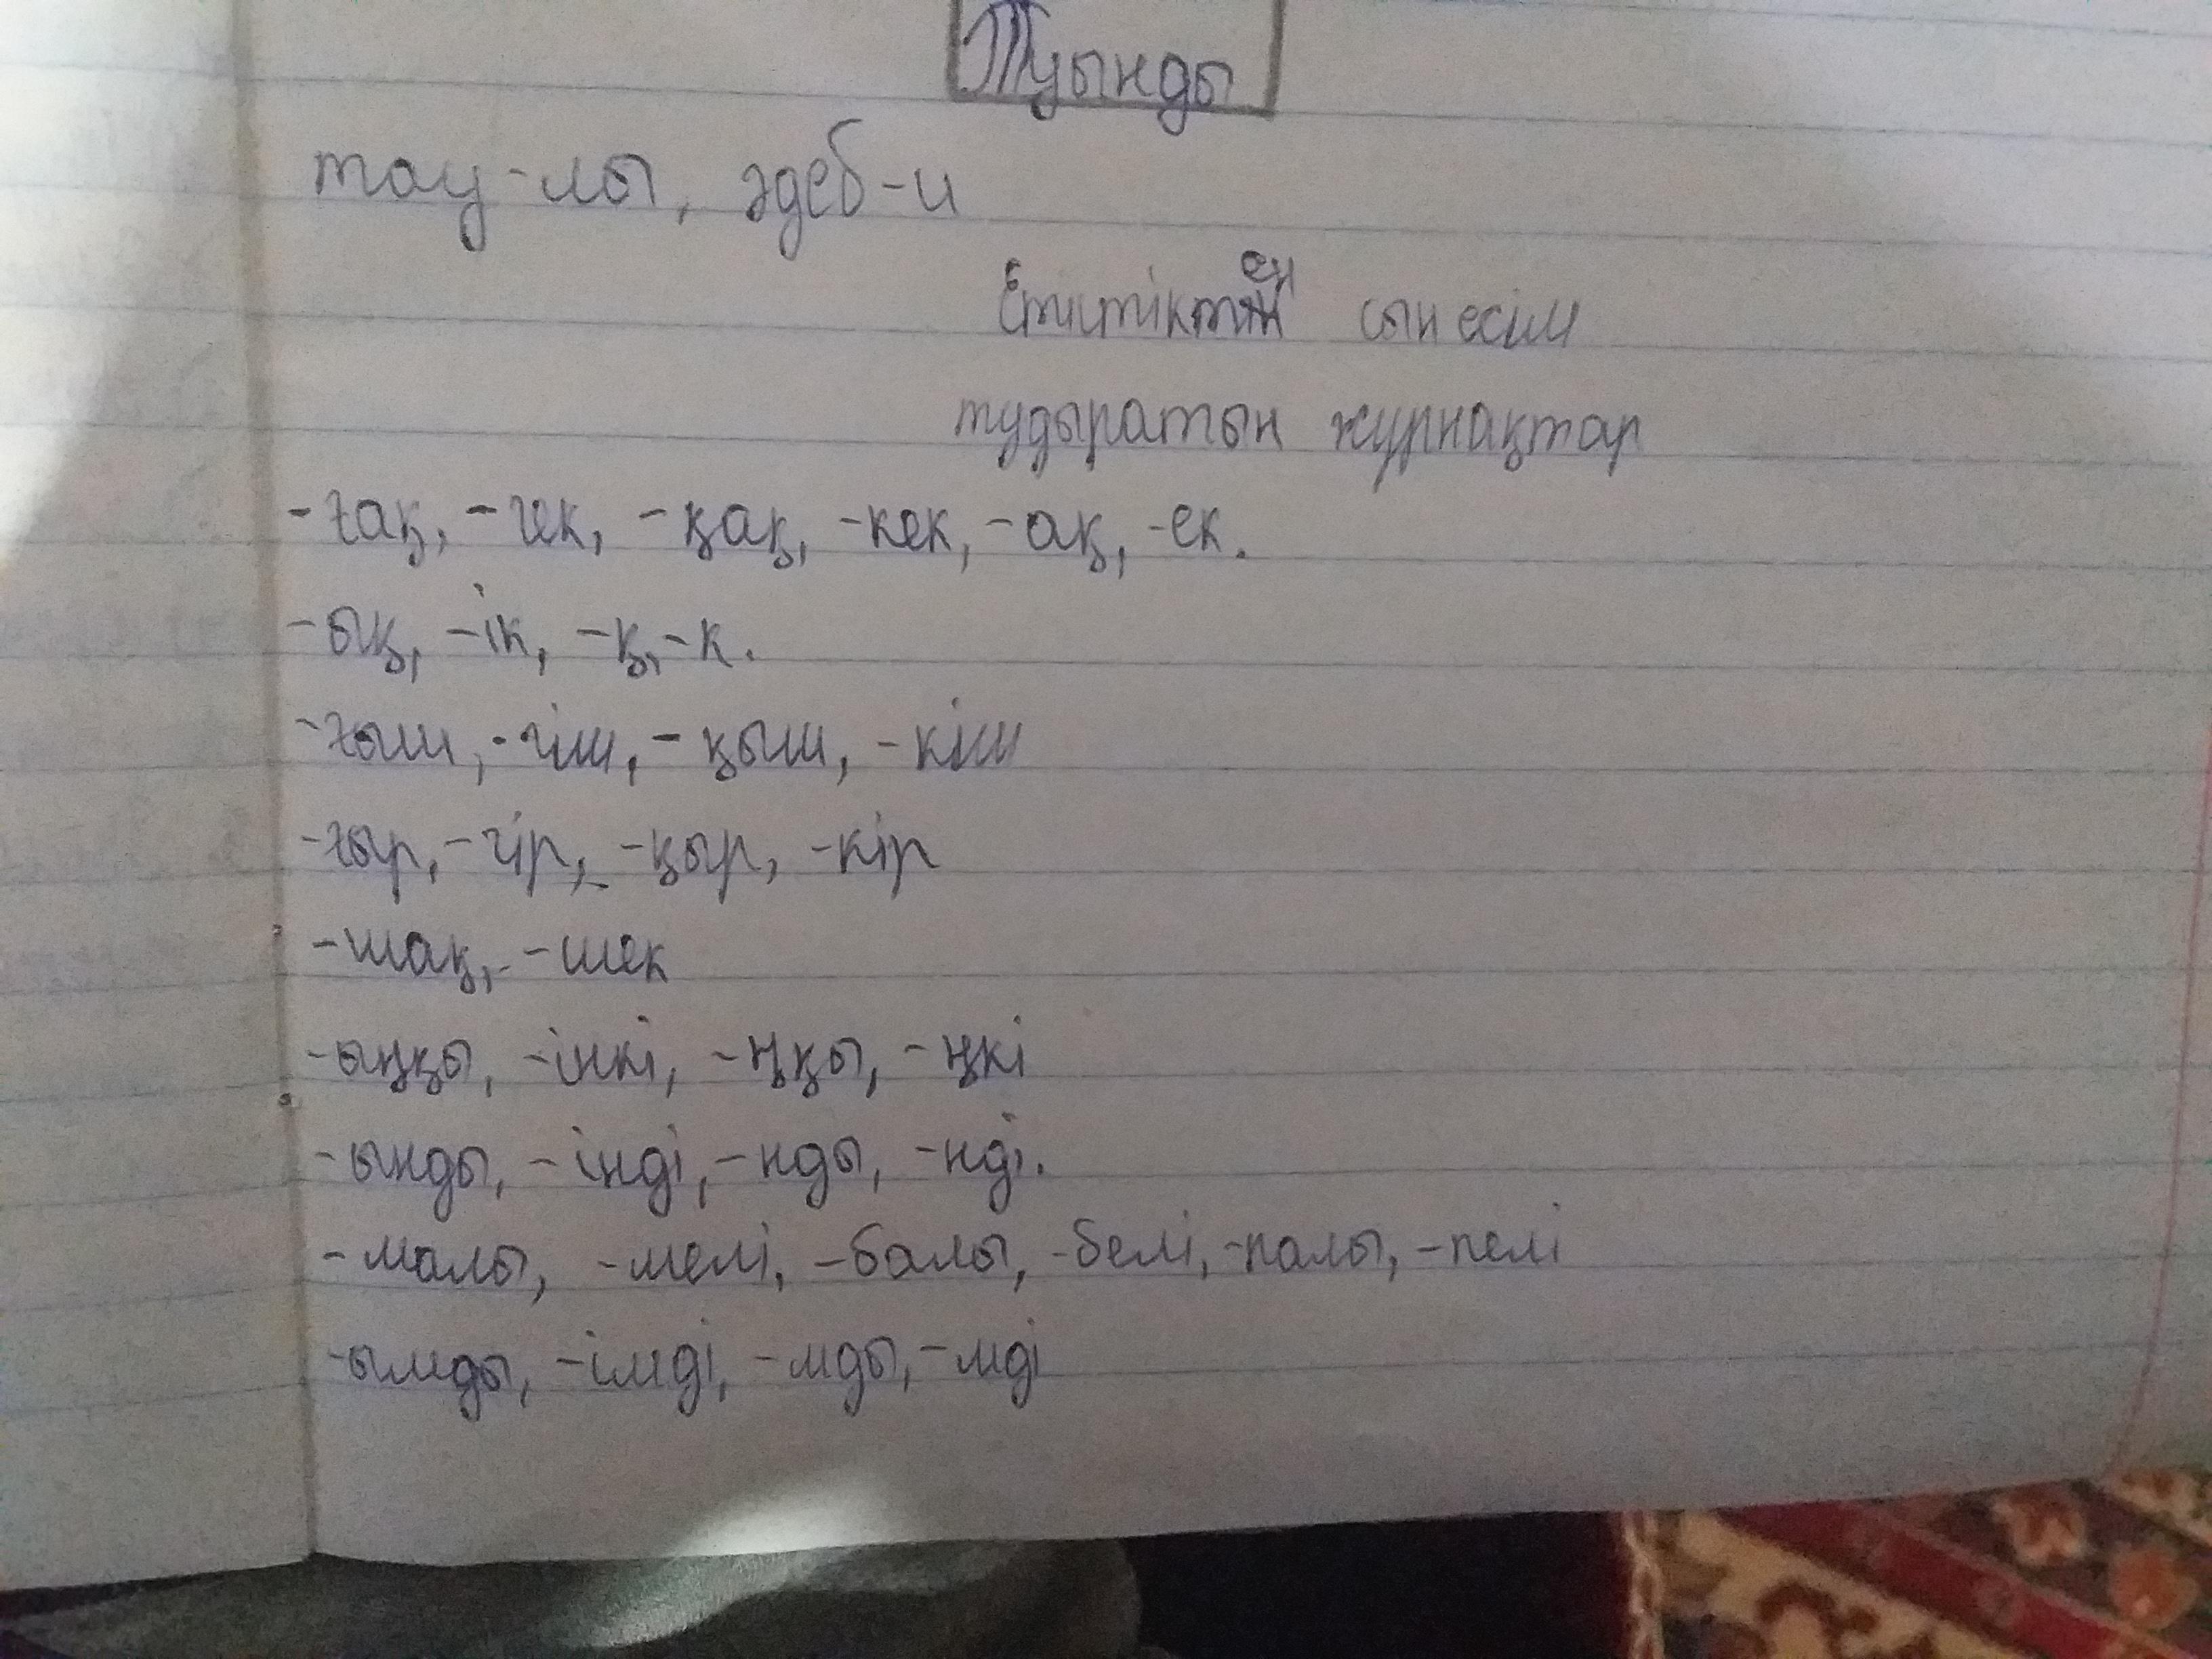 Туынды
тау-лы, әдеб-и
Етістіктен сын есім
тудыратын жұрнақтар
-ғақ, -гек, -қақ, -кек, -ақ, -ек.
-ық, -ік, -қ, -к.
-ғыш, -гіш, -қыш, -кіш
-ғыр, -гір, -қыр, -кір
-шақ, -шек
-ыңқы, -інкі, -ңқы, -ңкі
-ынды, -інді, -нды, -нді.
-малы, -мелі, -балы, -белі, -палы, -пелі
-ымды, -імді, -мды, -мді